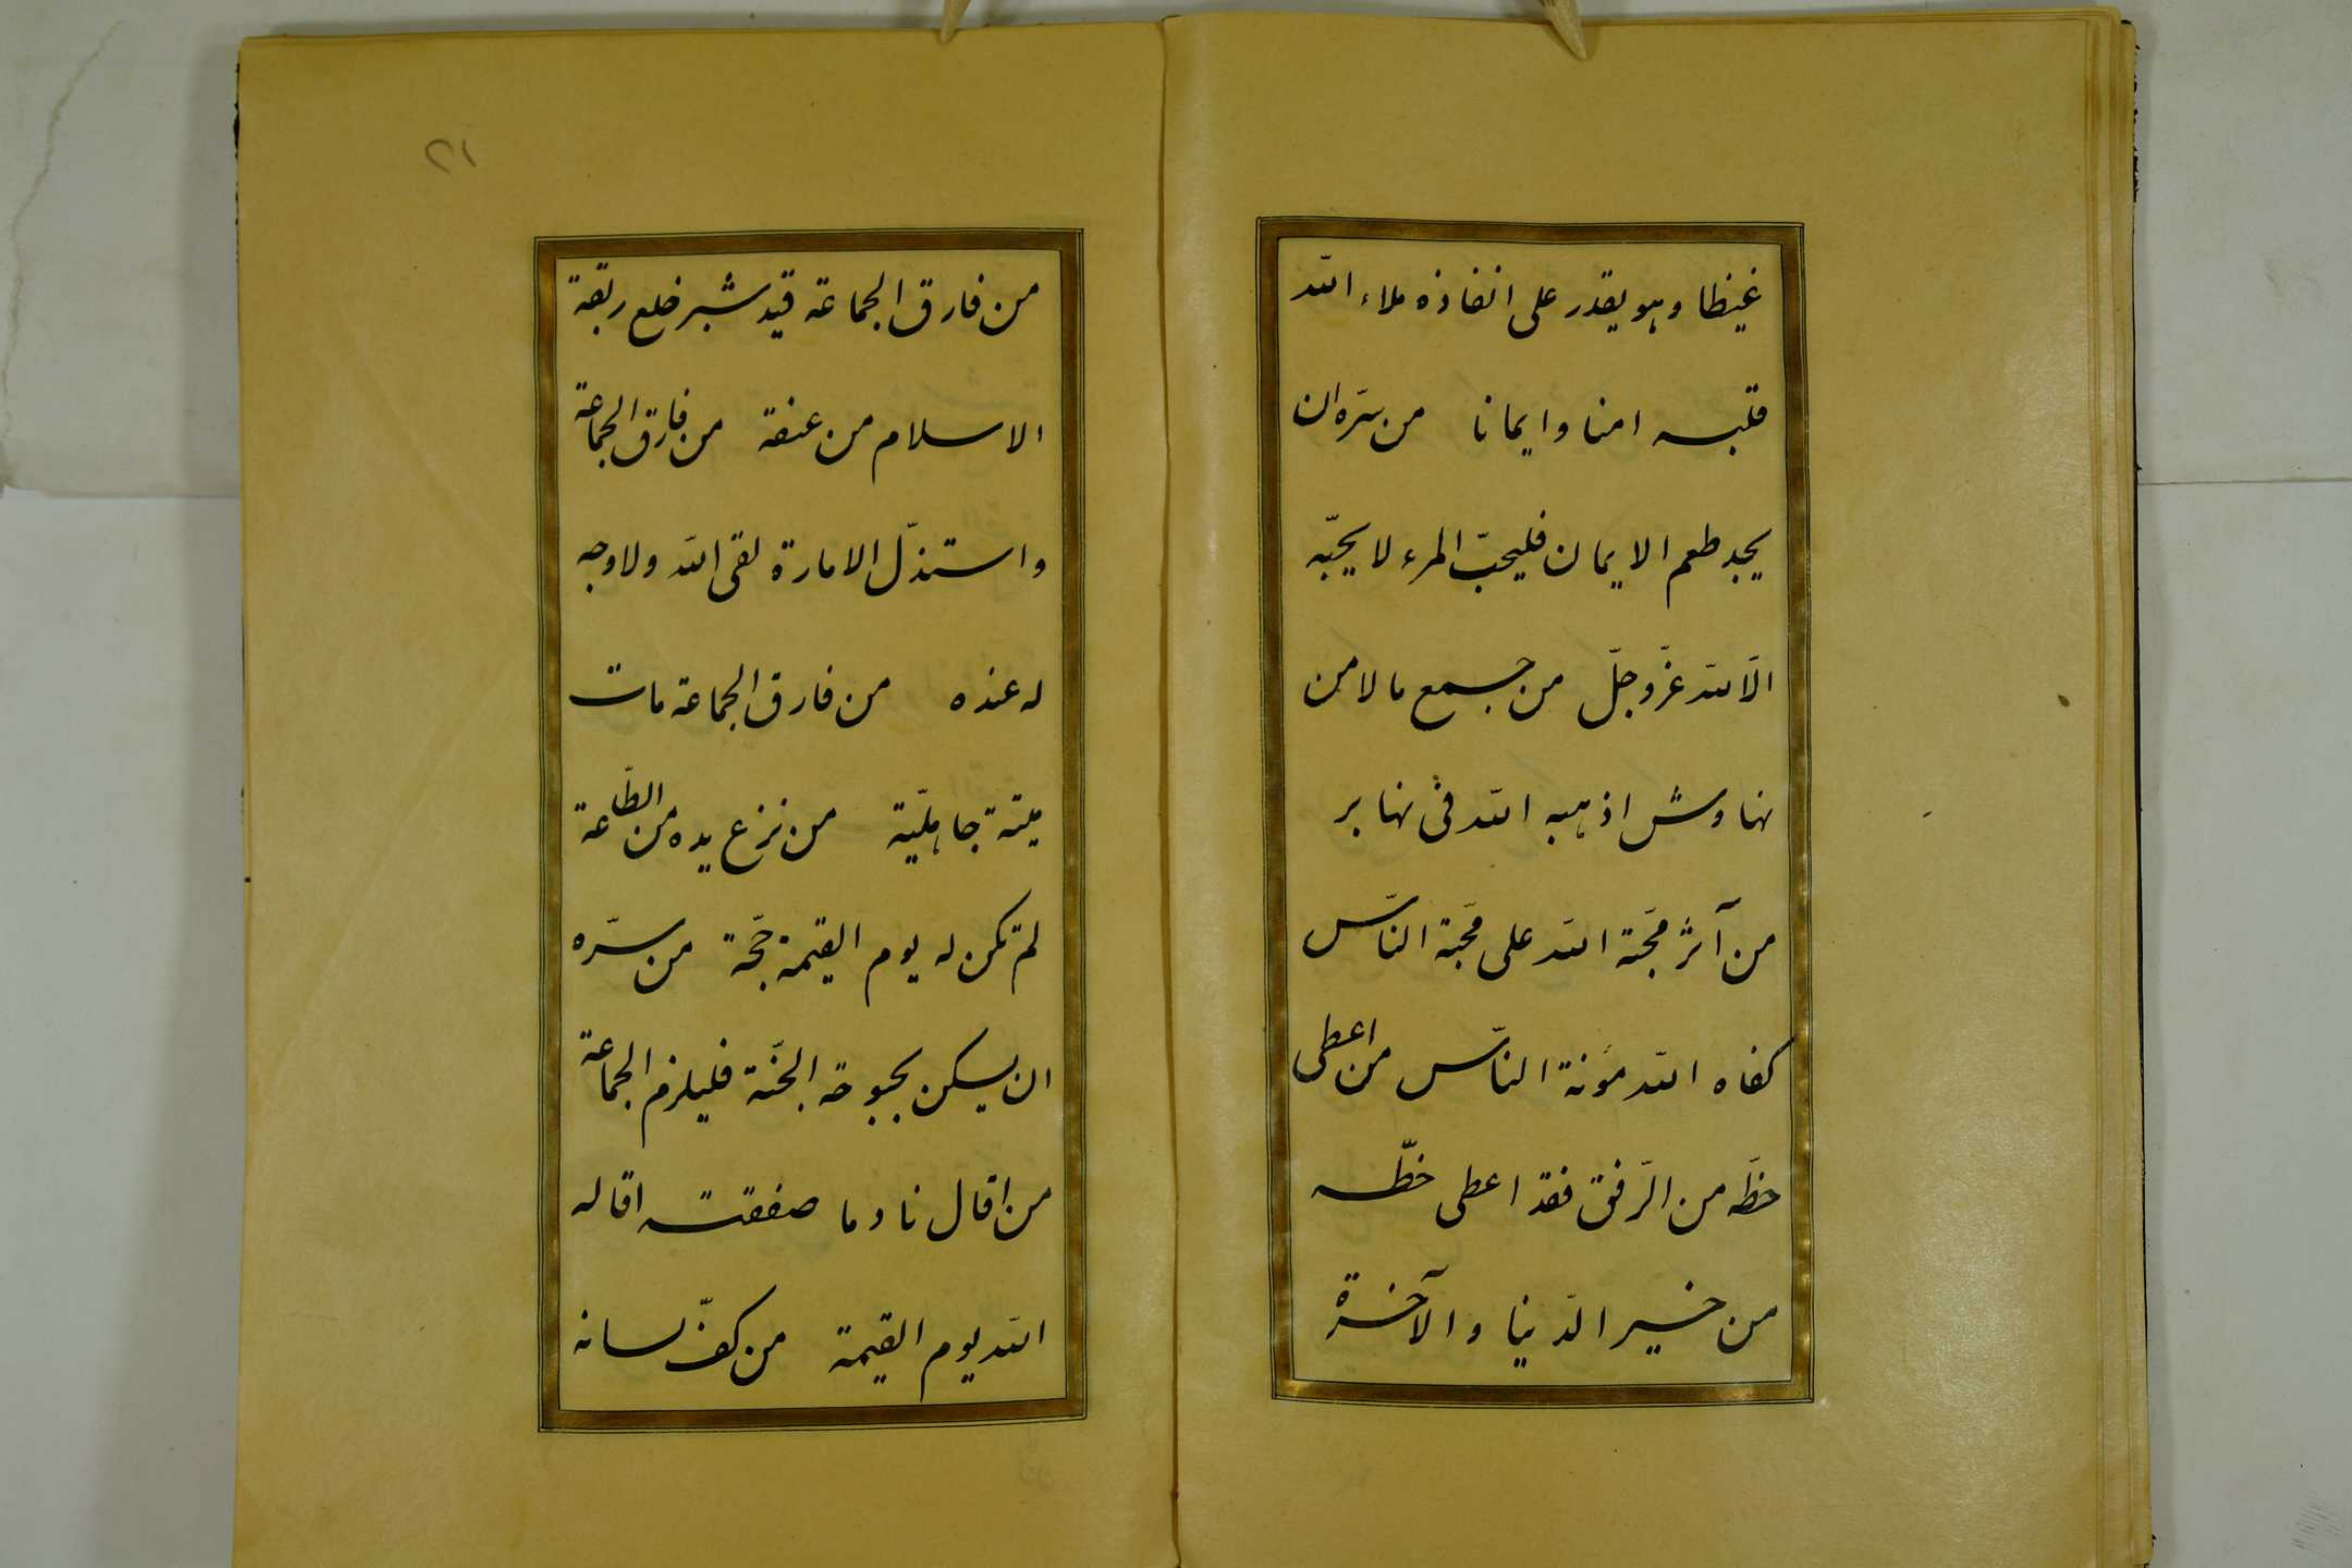 غيظا وهو يقدر على انفاذه ملاء الله
قلبه امنا وايمانا من سرّه ان
يجد طعم الايمان فليحبّ المرء لا يحبّه
الّا لله عزّ وجلّ من جمع مالا من
نهاوش اذهبه الله فى نهابر
من آثر محبّة الله على محبّة النّاس
كفاه الله مؤنة النّاس من اعطى
حظّه من الرّفق فقد اعطى حظّه
من خير الدّنيا والآخرة
٢١
من فارق الجماعة قيد شبر خلع ربقة
الاسلام من عنقه من فارق الجماعة
واستذلّ الامارة لقى الله ولا وجه
له عنده من فارق الجماعة مات
ميتة جاهليّة من نزع يده من الطّاعة
لم تكن له يوم القيمة حجّة من سرّه
ان يسكن بحبوحة الجنّة فليلزم الجماعة
من اقال نادما صفقته اقاله
الله يوم القيمة من كفّ لسانه